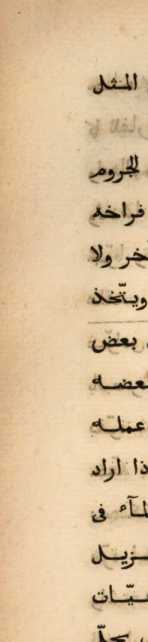 المثل
الجروم
فراخه
خر ولا
ويتّخذ
بعض
بعضه
عمله
ذا اراد
لمآء فى
ـزيل
ـيّات
يحلّ